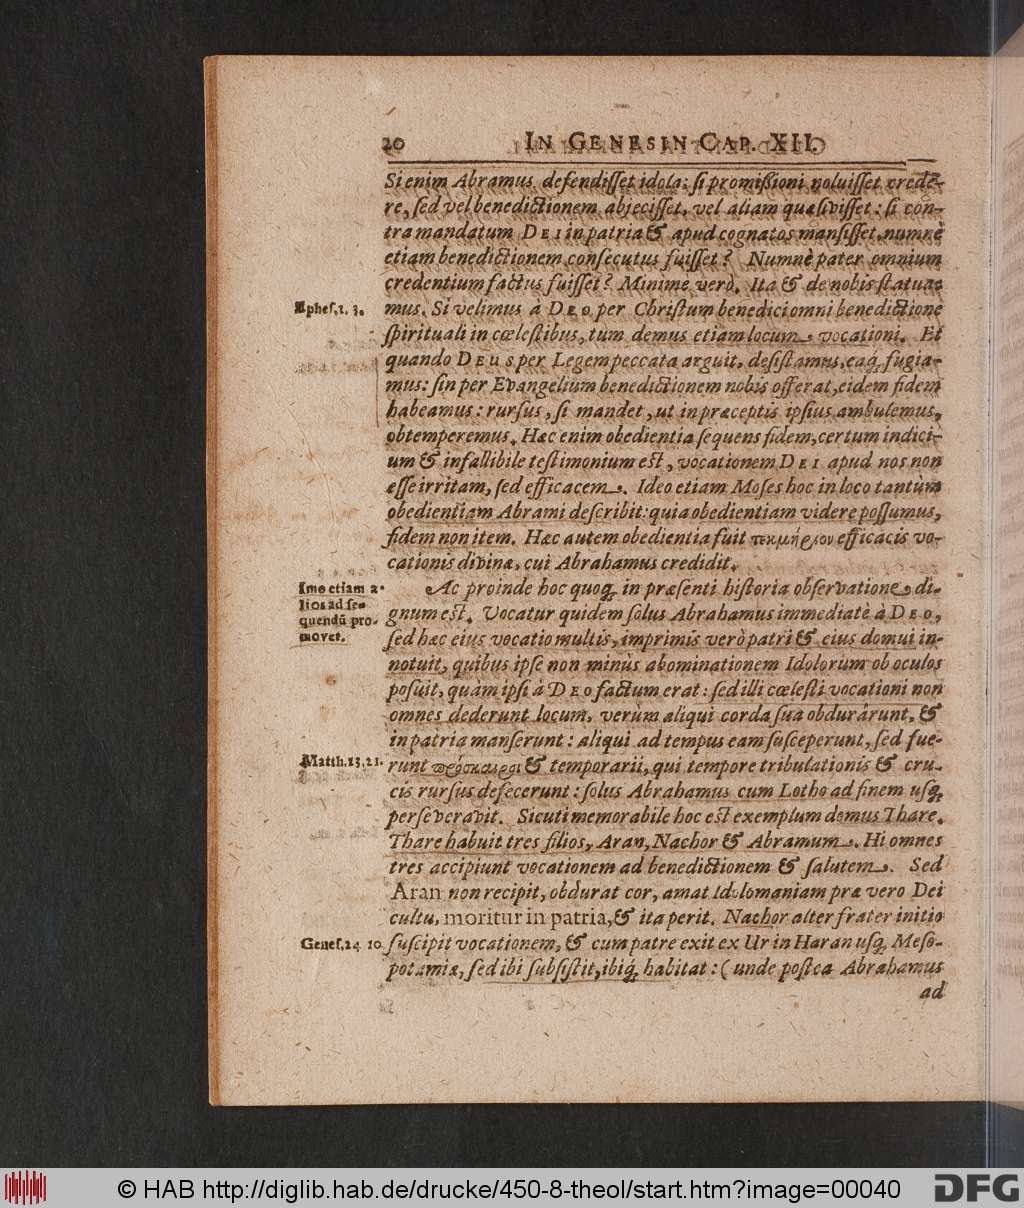 20 IN GENESIN CAP. XII.
Si enim Abramus defendisset idola: si promißioni noluisset crede-
re, sed vel benedictionem abjecisset, vel aliam quæsivisset: si con-
tra mandatum DEI in patria & apud cognatos mansisset, numnè
etiam benedictionem consecutus fuisset? Numnè pater omnium
credentium factus fuisset? Minimè verò. Ita & de nobis statua-
Ephes. 1. 3. mus. Si velimus à DEO per Christum benedici omni benedictione
spirituali in cœlestibus, tùm demus etiam locum vocationi. Et
quando DEUS per Legem peccata arguit, desistamus, eaq́; fugia-
mus: sin per Evangelium benedictionem nobis offerat, eidem fidem
habeamus: rursus, si mandet, ut in præceptis ipsius ambulemus,
obtemperemus. Hæc enim obedientia sequens fidem, certum indici-
um & infallibile testimonium est, vocationem DEI apud nos non
esse irritam, sed efficacem. Ideo etiam Moses hoc in loco tantùm
obedientiam Abrami describit: quia obedientiam videre possumus,
fidem non item. Hæc autem obedientia fuit τεκμήριον efficacis vo-
cationis divinæ, cui Abrahamus credidit.
Imo etiam a-
lios ad se-
quendū pro-
movet.
Ac proinde hoc quoq; in præsenti historia observatione di-
gnum est. Vocatur quidem solus Abrahamus immediatè à DEO,
sed hæc eius vocatio multis, imprimis verò patri & eius domui in-
notuit, quibus ipse non minùs abominationem Idolorum ob oculos
posuit, quàm ipsi à DEO factum erat: sed illi cœlesti vocationi non
omnes dederunt locum, verùm aliqui corda sua obdurârunt, &
in patria manserunt: aliqui ad tempus eam susceperunt, sed fue-
Matth. 13, 21. runt πρόσκαιροι & temporarii, qui tempore tribulationis & cru-
cis rursus defecerunt: solus Abrahamus cum Lotho ad finem usq;
perseveravit. Sicuti memorabile hoc est exemplum domus Thare.
Thare habuit tres filios, Aran, Nachor & Abramum. Hi omnes
tres accipiunt vocationem ad benedictionem & salutem. Sed
Aran non recipit, obdurat cor, amat Idolomaniam præ vero Dei
cultu, moritur in patria, & ita perit. Nachor alter frater initio
Genes. 24. 10. suscipit vocationem, & cum patre exit ex Ur in Haran usq; Meso-
potamiæ, sed ibi subsistit, ibiq́; habitat: (unde postea Abrahamus
ad
© HAB http://diglib.hab.de/drucke/450-8-theol/start.htm?image=00040 DFG